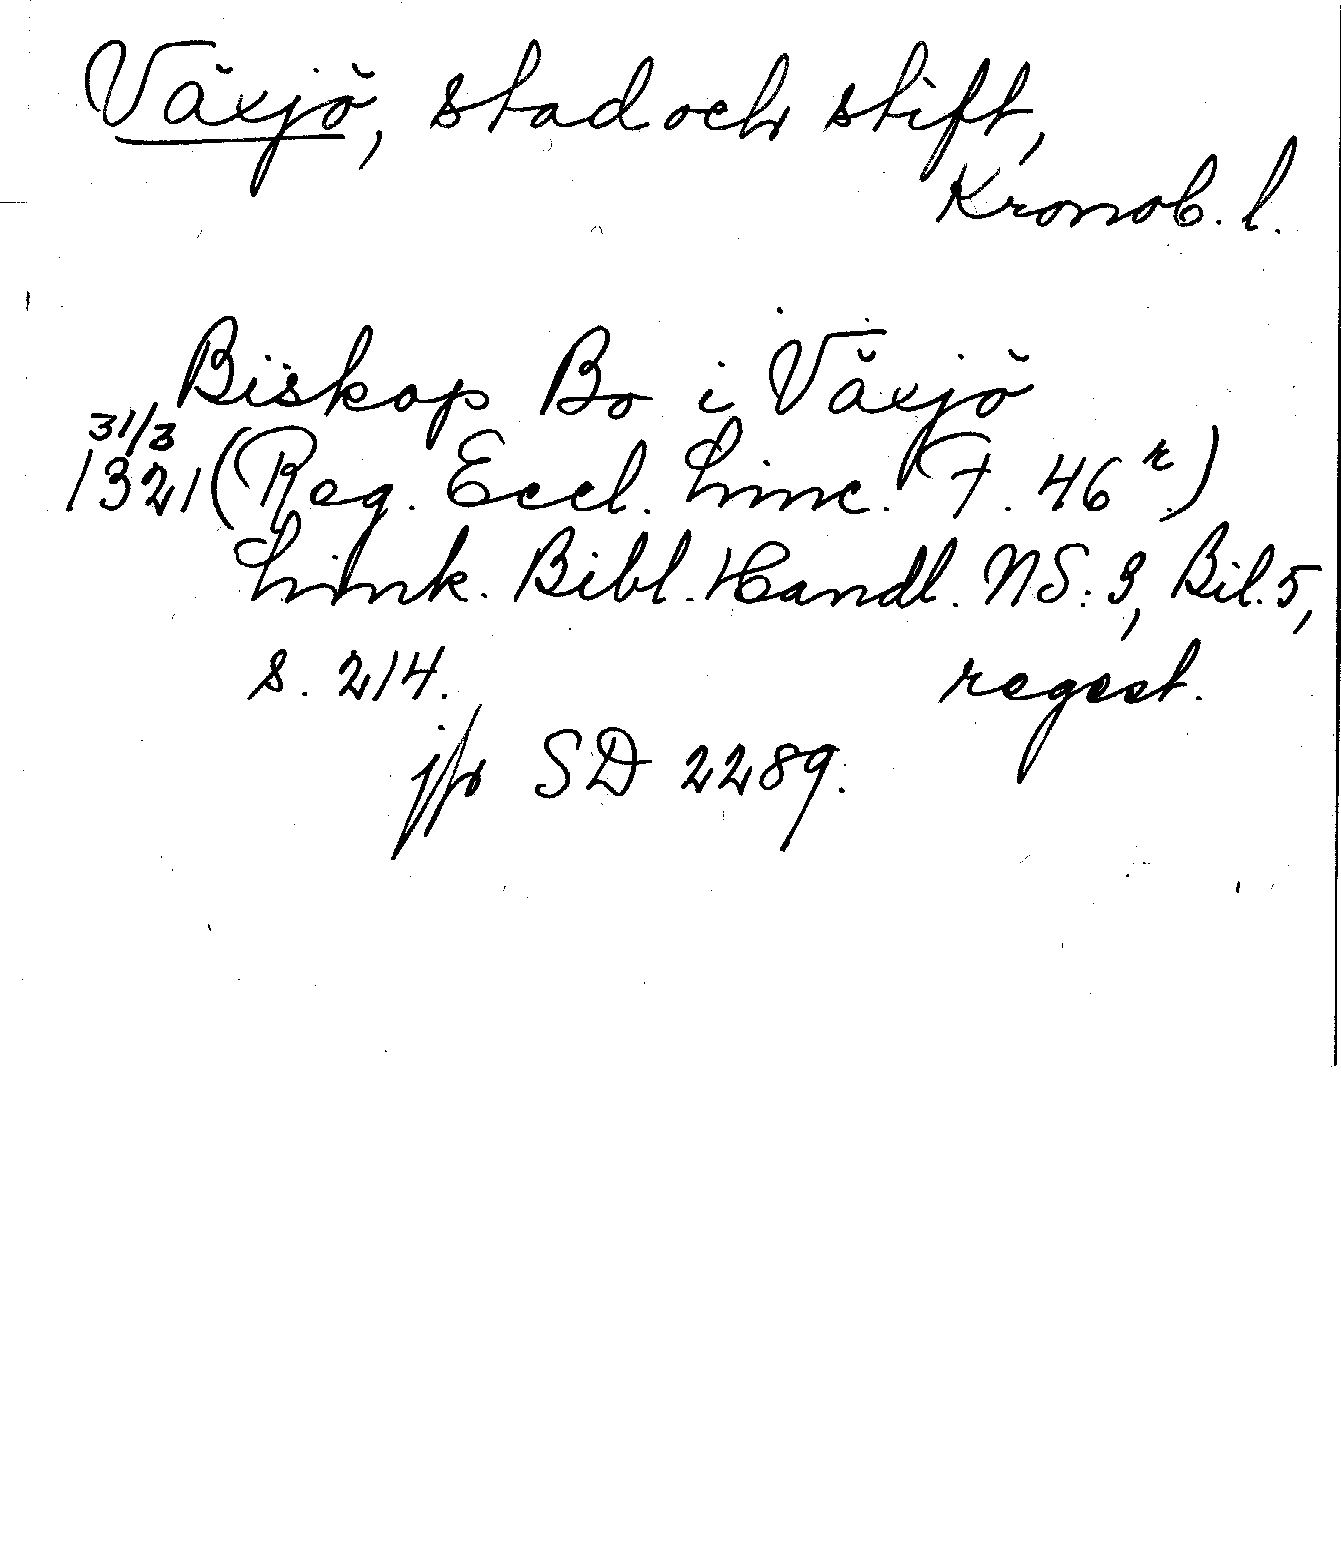 Växjö, stad och stift,
Kronob. l.
Biskop Bo i Växjö
31/3
1321 (Reg. Eccl. Linc. F. 46r.)
Link. Bibl. Handl. NS: 3, Bil. 5,
s. 214. regest.
jfr SD 2289.